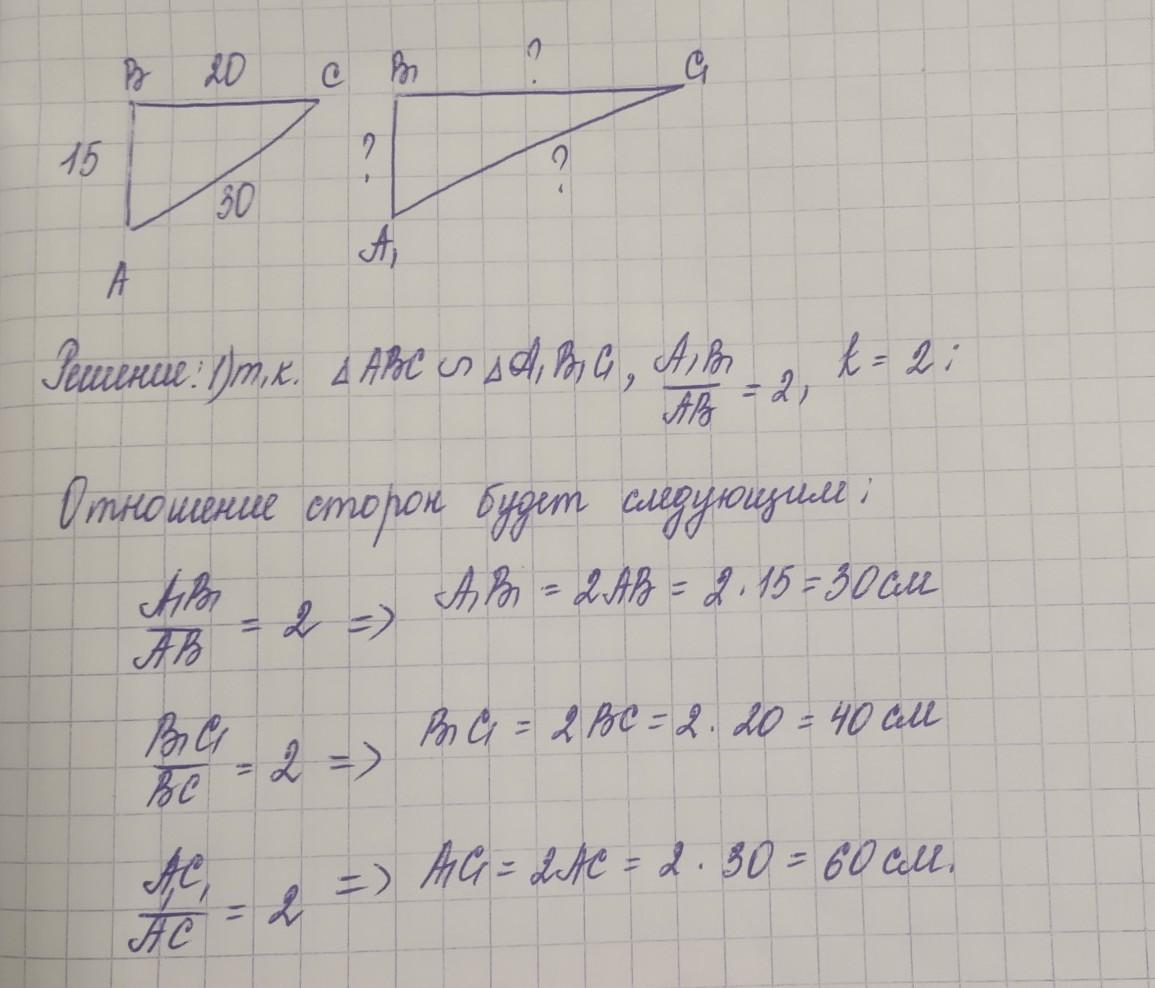 B 20 C B₁ ? C₁
15 ?
30 ?
A A₁
Решение: 1) т.к. △ABC ∽ △A₁B₁C₁, A₁B₁/AB = 2, k = 2;
Отношение сторон будет следующим:
A₁B₁/AB = 2 => A₁B₁ = 2AB = 2·15 = 30 см
B₁C₁/BC = 2 => B₁C₁ = 2BC = 2·20 = 40 см
A₁C₁/AC = 2 => A₁C₁ = 2AC = 2·30 = 60 см.